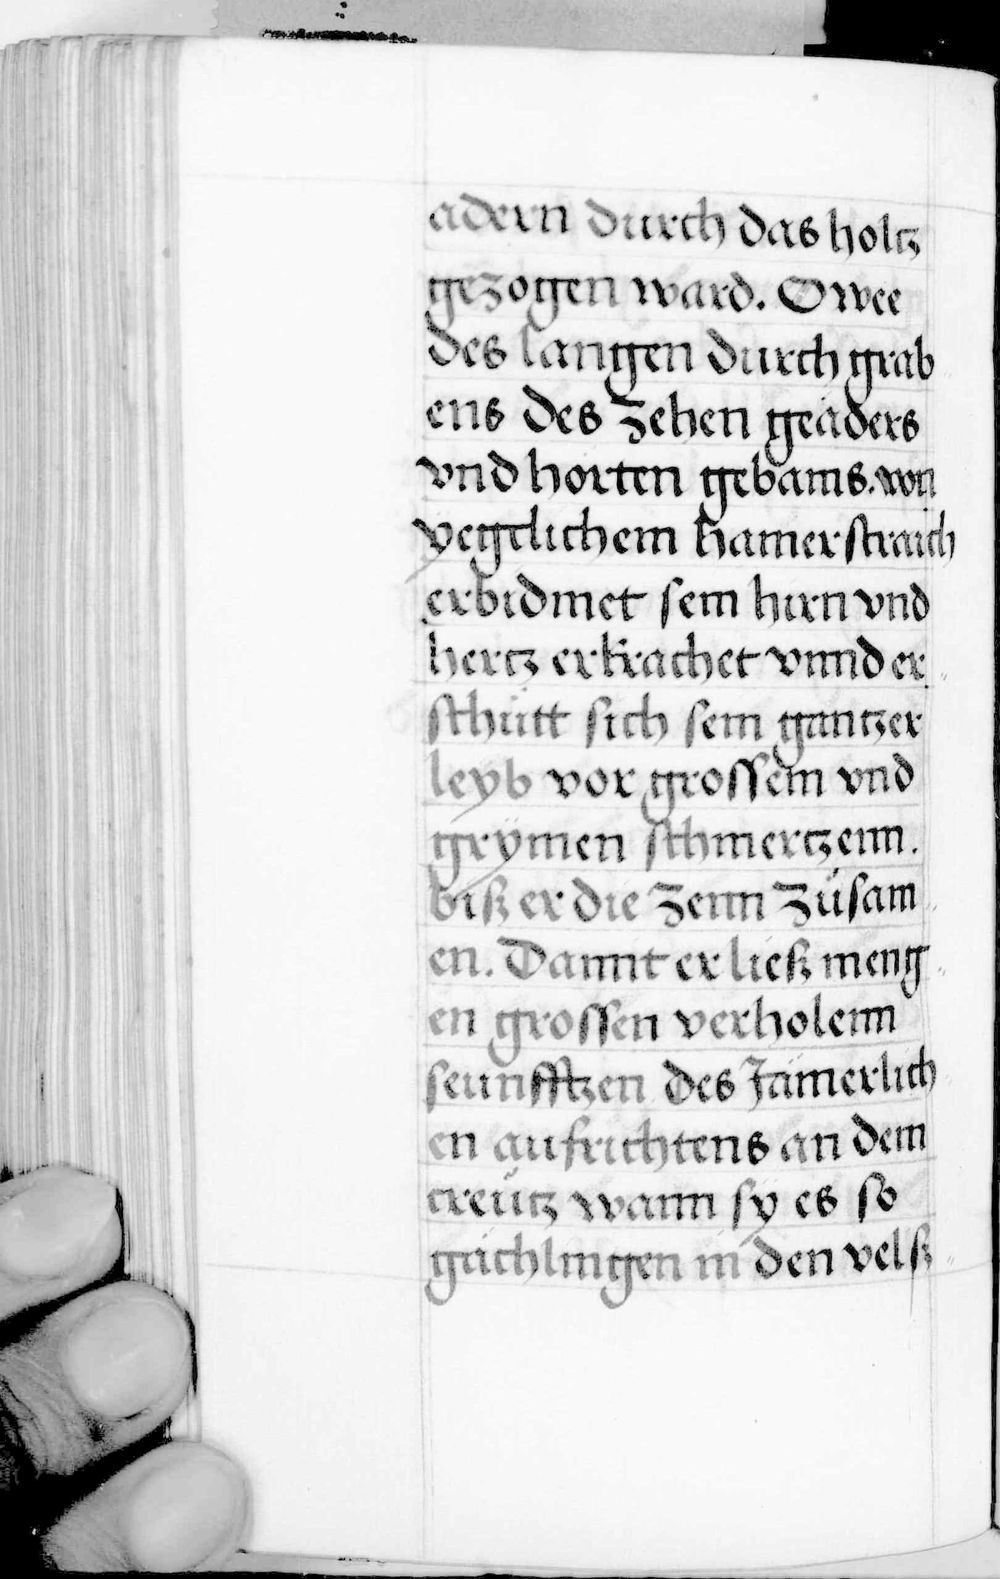 adern durch das holtz
gezogen ward. O wee
des langen durch grab
ens des zehen geäders
vnd horten gebains. von
yegclichem hamer straich
erbidmet sein hirn vnd
hertz erkrachet vnnd er
schütt sich sein gantzer
leyb vor grossem vnd
grÿmen schmertzenn.
biß er die zenn züsam
en. Damit er ließ meng
en grossen verholenn
seunfftzen des Jämerlich
en aufrichtens an dem
creütz wann sÿ es so
gächlingen in den velß